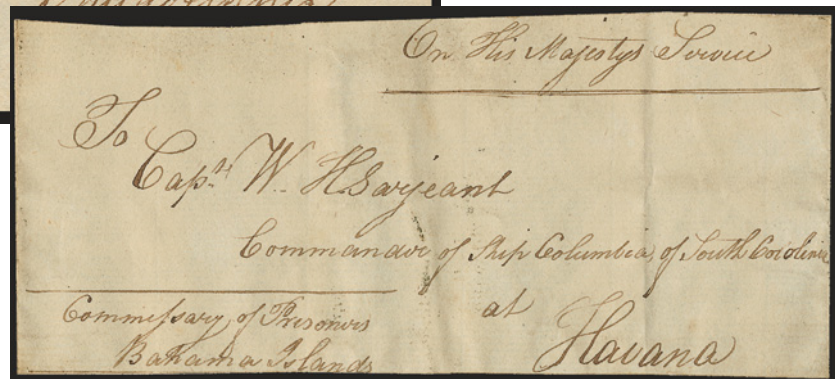 On His Majestys Service
To
Capt. W. H Sarjeant
Commander of Ship Columbia, of South Carolina
at
Havana
Commissary, of Prisoners
Bahama Islands